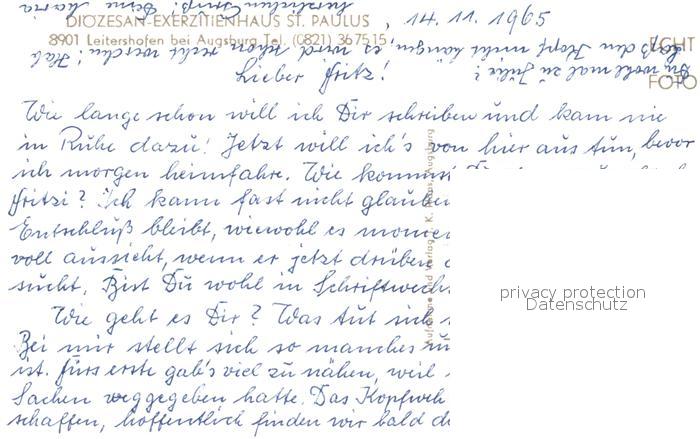 DIÖZESAN-EXERZITIENHAUS ST. PAULUS
8901 Leitershofen bei Augsburg, Tel. (0821) 367515
, 14. 11. 1965
ECHT
FOTO
herzlichen Gruß! Deine Maria
laß den Kopf nicht hängen, es wird schon recht werden! Hab
Du wohl mal zu Julie?
Lieber Fritz!
Wie lange schon will ich Dir schreiben und kam nie
in Ruhe dazu! Jetzt will ich's von hier aus tun, bevor
ich morgen heimfahre. Wie kommst
Fritzi? Ich kann fast nicht glauben
Entschluß bleibt, wiewohl es momen
voll aussieht, wenn er jetzt drüben
sucht. Bist Du wohl in Schriftwech
Wie geht es Dir? Was tut sich
Bei mir stellt sich so manches
ist. Fürs erste gab's viel zu nähen, weil
Sachen weggegeben hatte. Das Kopfweh
schaffen, hoffentlich finden wir bald d
Aufnahme und Verlag: K.
Augsburg
privacy protection
Datenschutz